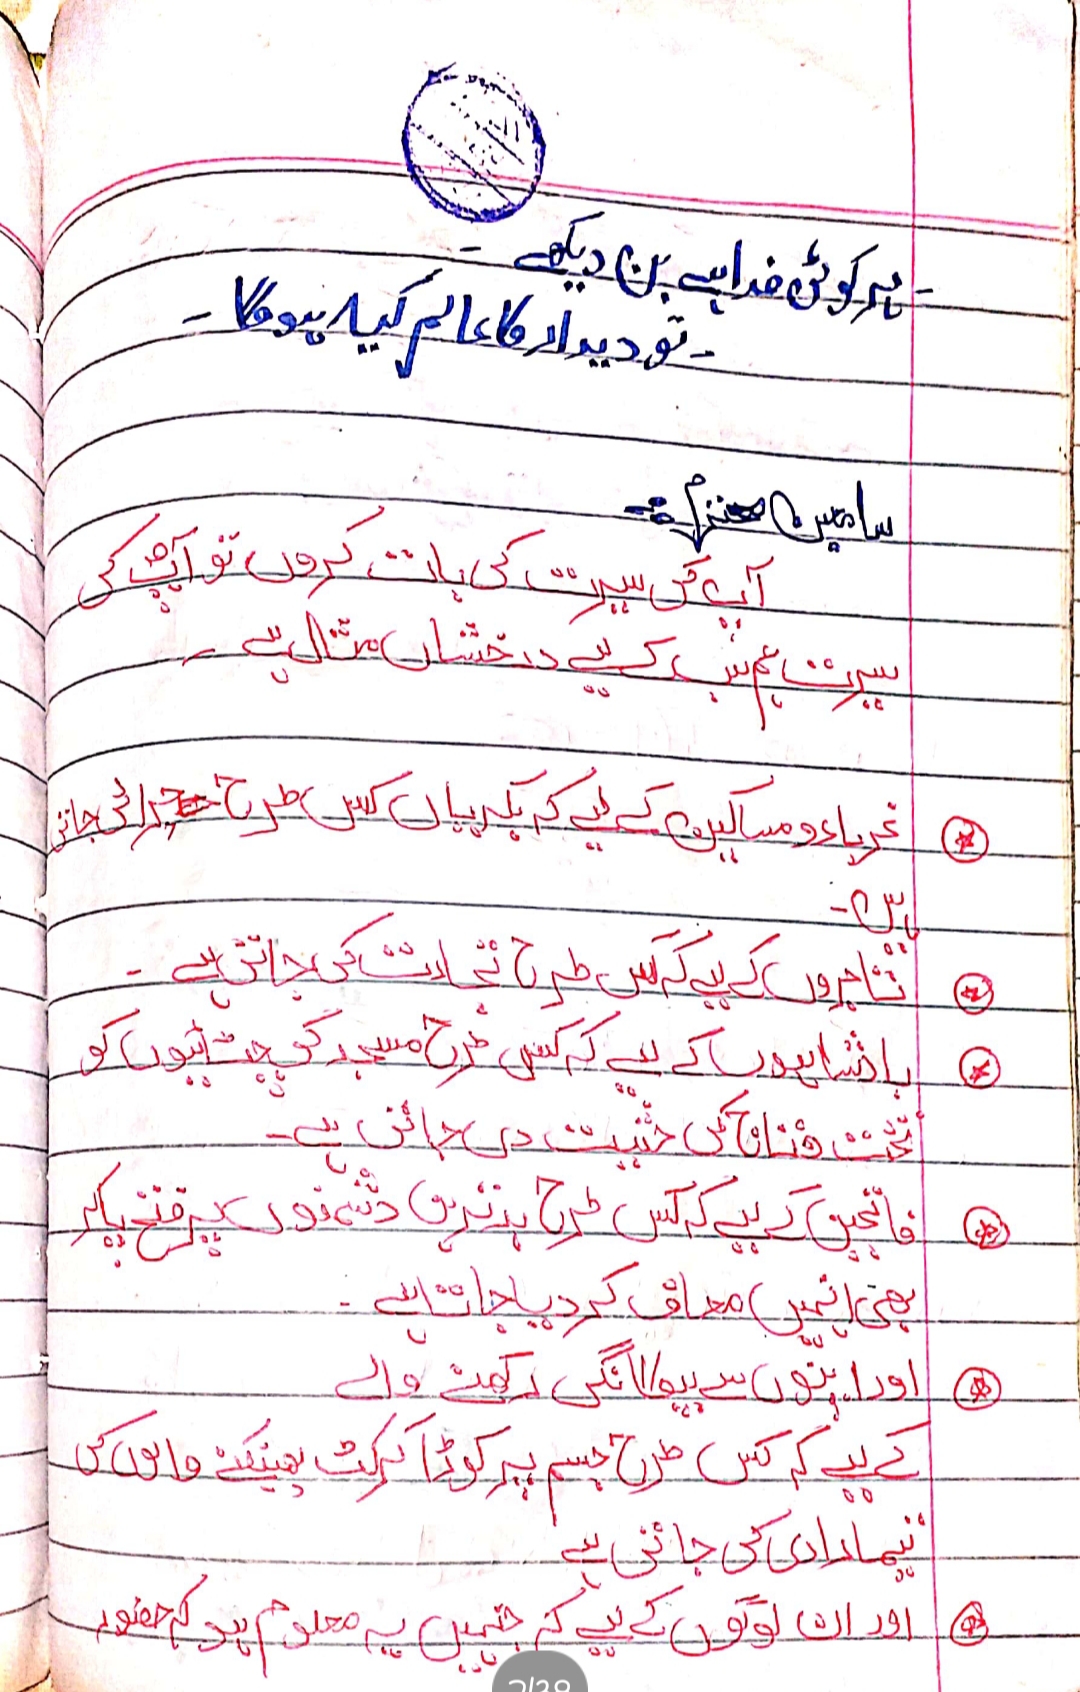 ہر کوئی فدا ہے بن دیکھے -
تو دیدار کا عالم کیا ہوگا -
سامعین محترم :-
آپ کی سیرت کی بات کروں تو آپؐ کی
سیرت ہم سب کے لیے درخشاں مثال ہے -
غرباء و مساکین کے لیے کہ بکریاں کس طرح چرائی جاتی
ہیں -
تاجروں کے لیے کہ کس طرح تجارت کی جاتی ہے -
بادشاہوں کے لیے کہ کس طرح مسجد کی چٹائیوں کو
تخت و تاج کی حثیت دی جاتی ہے -
فاتحین کے لیے کہ کس طرح بدترین دشمنوں پر فتح پا کر
بھی انہیں معاف کر دیا جاتا ہے -
اور اپنوں سے رکھنے والے
کے لیے کہ کس طرح جسم پر کوڑا کرکٹ پھینکنے والوں کی
تیمارداری کی جاتی ہے
اور ان لوگوں کے لیے کہ جنہیں یہ معلوم ہو کہ حضور